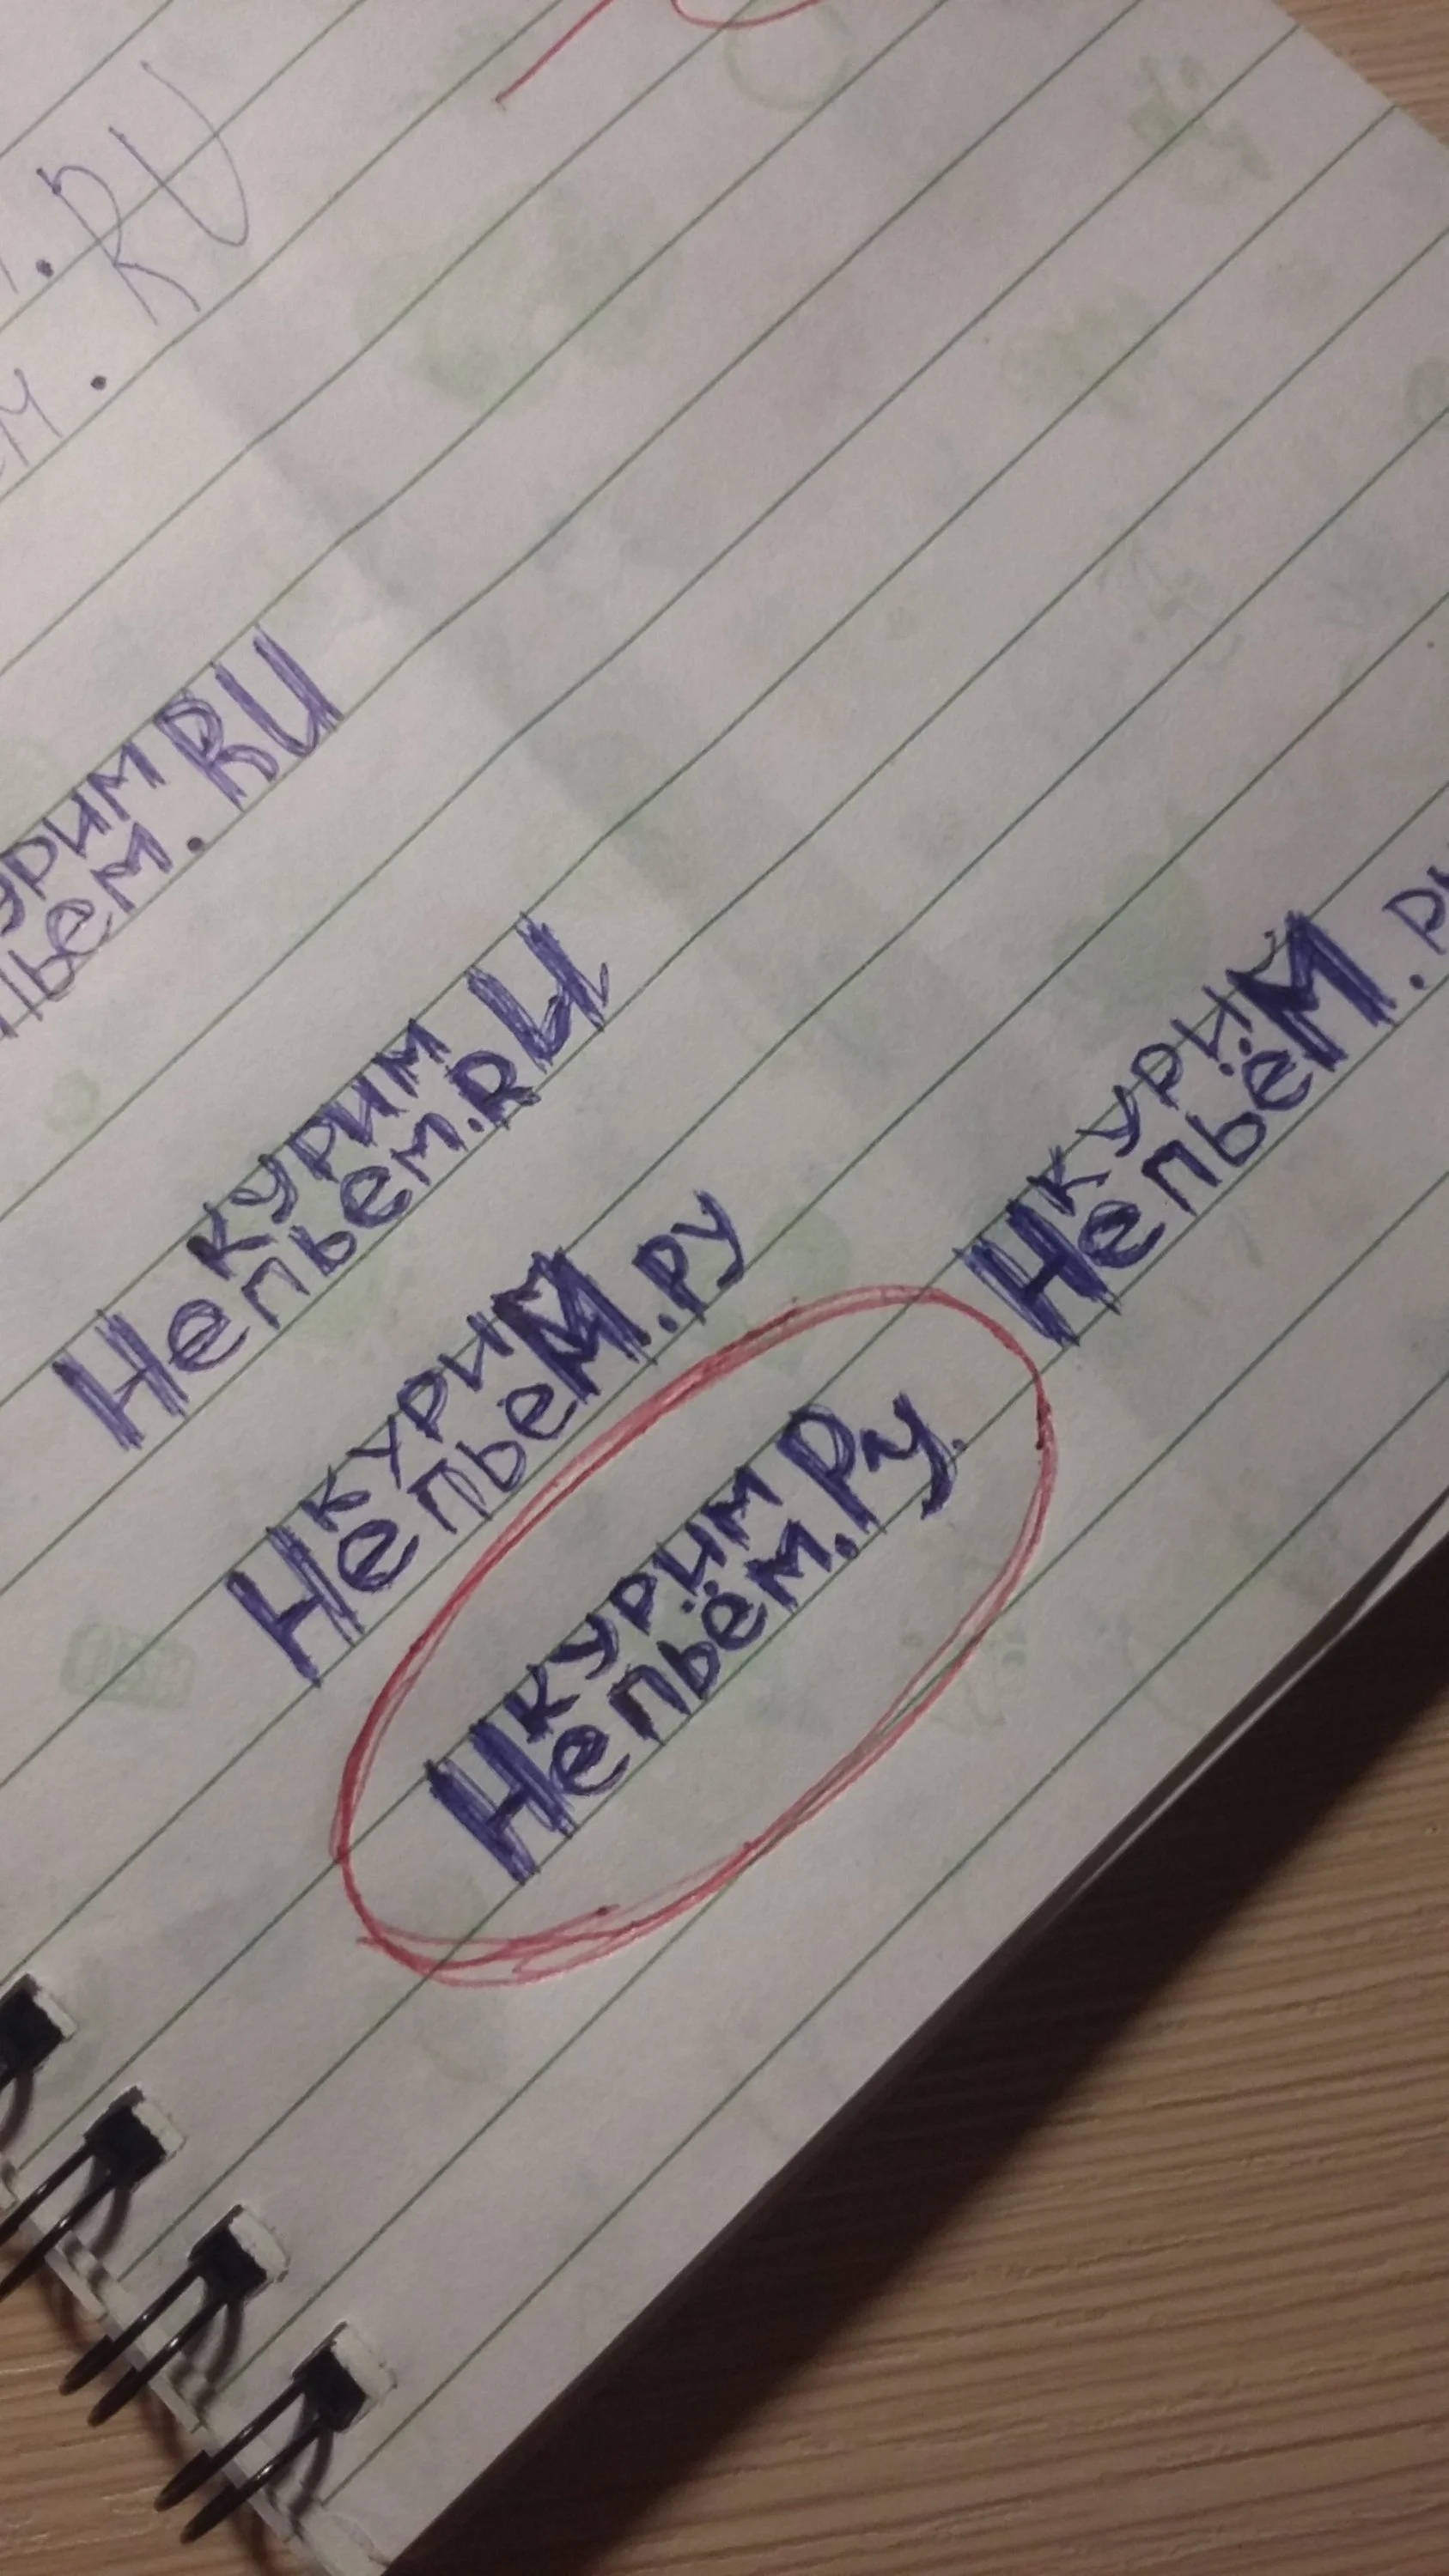 .RU
урим
ьем.RU
курим
Непьем.RU
кури
НепьеМ.ру
курим
Непьём.Ру.
кури
НепьёМ.р